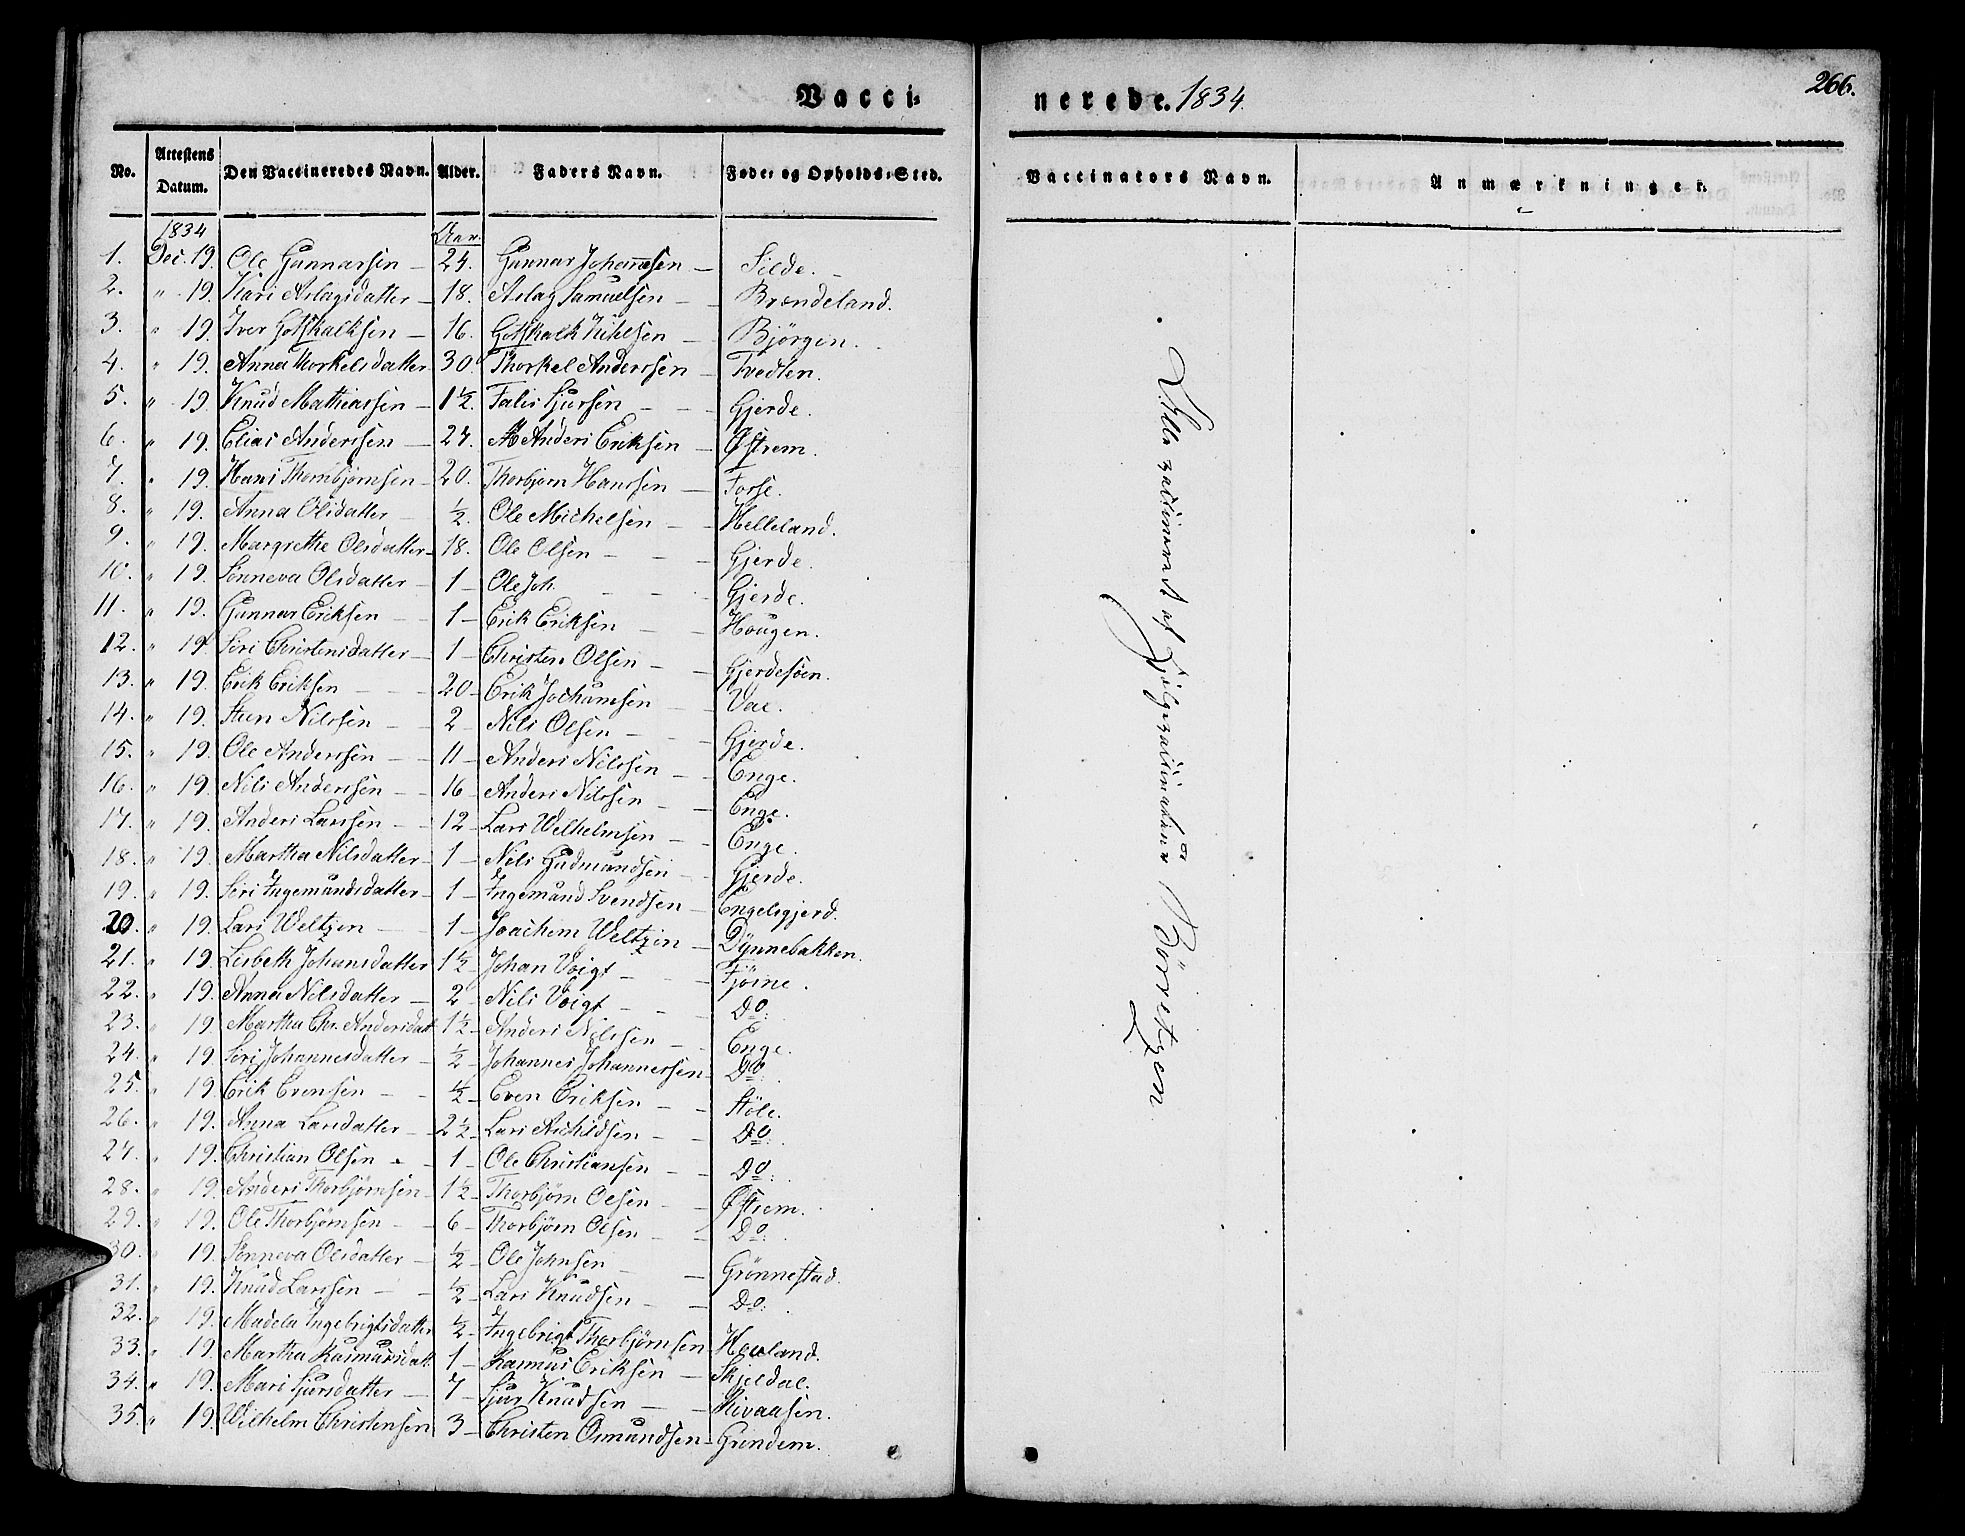 Vacci-
nerede. 1834.
266.
No. Attestens Datum. Den Vaccineredes Navn. Alder. Faders Navn. Føde- og Opholds-Sted.
Vaccinators Navn. Anmærkninger.
1834 Aar.
1. Dec. 19. Ole Gunnarsen – 24. Gunnar Johannesen – Silde. –
2. " 19. Kari Aslagsdatter – 18. Aslag Samuelsen – – Brændeland.
3. " 19. Iver Gotskalksen – 16. Gotskalk – Bjørgen.
4. " 19. Anna Thorkelsdatter 30. Thorkel Anderssen – Tvedten.
5. " 19. Knud Mathiassen – 1½. – – Gjerde.
6. " 19. Elias Anderssen – 27. Anders Eriksen – Østrem.
7. " 19. Hans Thornbjørnsen – 20. Thorbjørn Hanssen – Forse.
8. " 19. Anna Olsdatter – ½. Ole Michelsen – – Helleland.
9. " 19. Margrethe Olsdatter – 18. Ole Olsen – – Gjerde.
10. " 19. Sønneva Olsdatter – 1 – Ole Joh. – – Gjerde.
11. " 19. Gunnar Eriksen – 1 – Erik Eriksen – – Hougen.
12. " 19. Siri Christensdatter – 1 – Christen Olsen – – Gjerdesøen.
13. " 19. Erik Eriksen – – 20 – Erik Jochumsen – – Vae.
14. " 19. Steen Nilssen – – 2 – Nils Olsen – – Gjerde.
15. " 19. Ole Anderssen – – 11 – Anders Nilssen – – Enge.
16. " 19. Nils Anderssen – – 16 – Anders Nilssen – – Enge.
17. " 19. Anders Larssen – – 12 – Lars Wilhelmsen – – Enge.
18. " 19. Martha Nilsdatter – 1 – Nils Gudmundsen – – Gjerde.
19. " 19. Siri Ingemundsdatter – 1 – Ingemund Svendsen – Engelsgjerd.
20. " 19. Lars Weltzin – 1 – Joachem Weltzin – Dynnebakken.
21. " 19. Lisbeth Johansdatter 1½ – Johan Voigt – – Fjøsne.
22. " 19. Anna Nilsdatter – 2 – Nils Voigt – – Do.
23. " 19. Martha Chr. Andersdatt 1½ – Anders Nilssen – – Enge.
24. " 19. Siri Johannesdatter – ½ – Johannes Johannessen – Do.
25. " 19. Erik Evensen – – ½ – Even Eriksen – – Støle.
26. " 19. Anna Larsdatter – 2½ – Lars – – Do.
27. " 19. Christian Olsen – – 1 – Ole Christiansen – – Do.
28. " 19. Anders Thorbjørnsen – 1½ – Thorbjørn Olsen – – Østrem.
29. " 19. Ole Thorbjørnsen – – 6 – Thorbjørn Olsen – – Do.
30. " 19. Sønneva Olsdatter – ½ – Ole Johnsen – – Grønnestad.
31. " 19. Knud Larssen – – ½ – Lars Knudsen – – Do.
32. " 19. Madela Ingebrigtsdatter ½ – Ingebrigt Thorbjørnsen – Houland.
33. " 19. Martha Rasmusdatt. 1 – Rasmus Eriksen – Skjeldal.
34. " 19. Mari Sjursdatter – 7 – Sjur Knudsen – – Rivaasen.
35. " 19. Wilhelm Christensen 3 – Christen Osmundsen – Grindem.
Alle vaccineret af Hjelpevaccinateur Børretzen